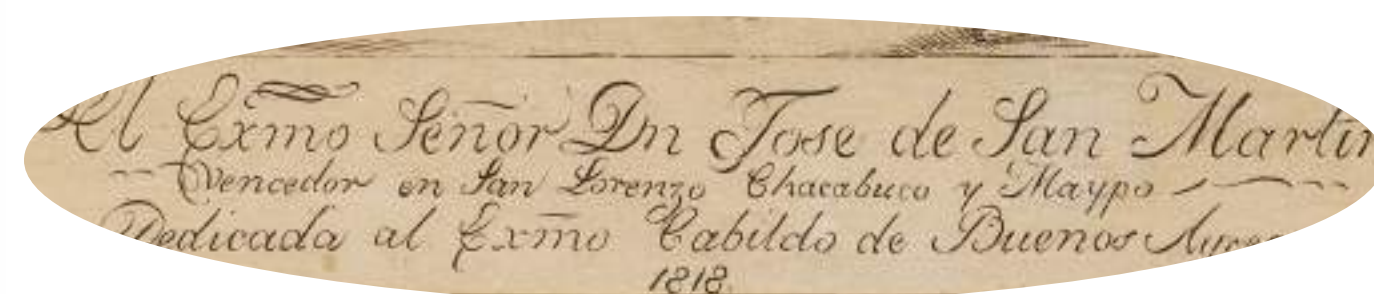 El Exmo Señor Dn Jose de San Martin
Vencedor en San Lorenzo Chacabuco y Maypo
Dedicada al Exmo Cabildo de Buenos Ayres
1818.